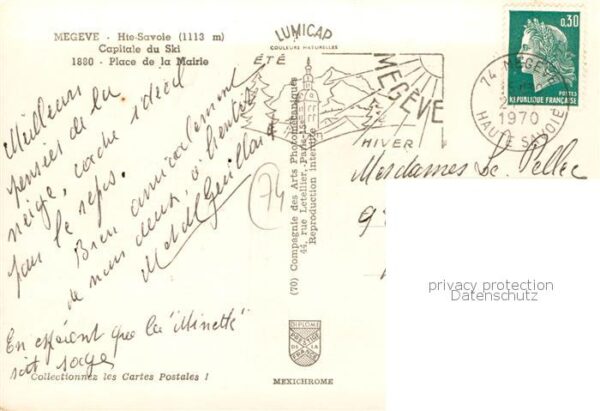 MEGEVE - Hte-Savoie (1113 m)
Capitale du Ski
1880 - Place de la Mairie
Meilleures
pensées de la
neige, cadre idéal
pour le repos.
Bien amicalement
de nous deux, à bientôt
En espérant que la "Minette"
soit sage
Collectionnez les Cartes Postales !
LUMICAP
COULEURS NATURELLES
ÉTÉ
MEGÈVE
HIVER
(70) Compagnie des Arts Photomécaniques
44, rue Letellier, Paris-15e
Reproduction interdite
74
DIPLOME
PRESTIGE
DE LA
FRANCE
MEXICHROME
0,30
REPUBLIQUE FRANÇAISE
74 MEGEVE
1970
HAUTE SAVOIE
Mesdames Le Pellec
9
privacy protection
Datenschutz